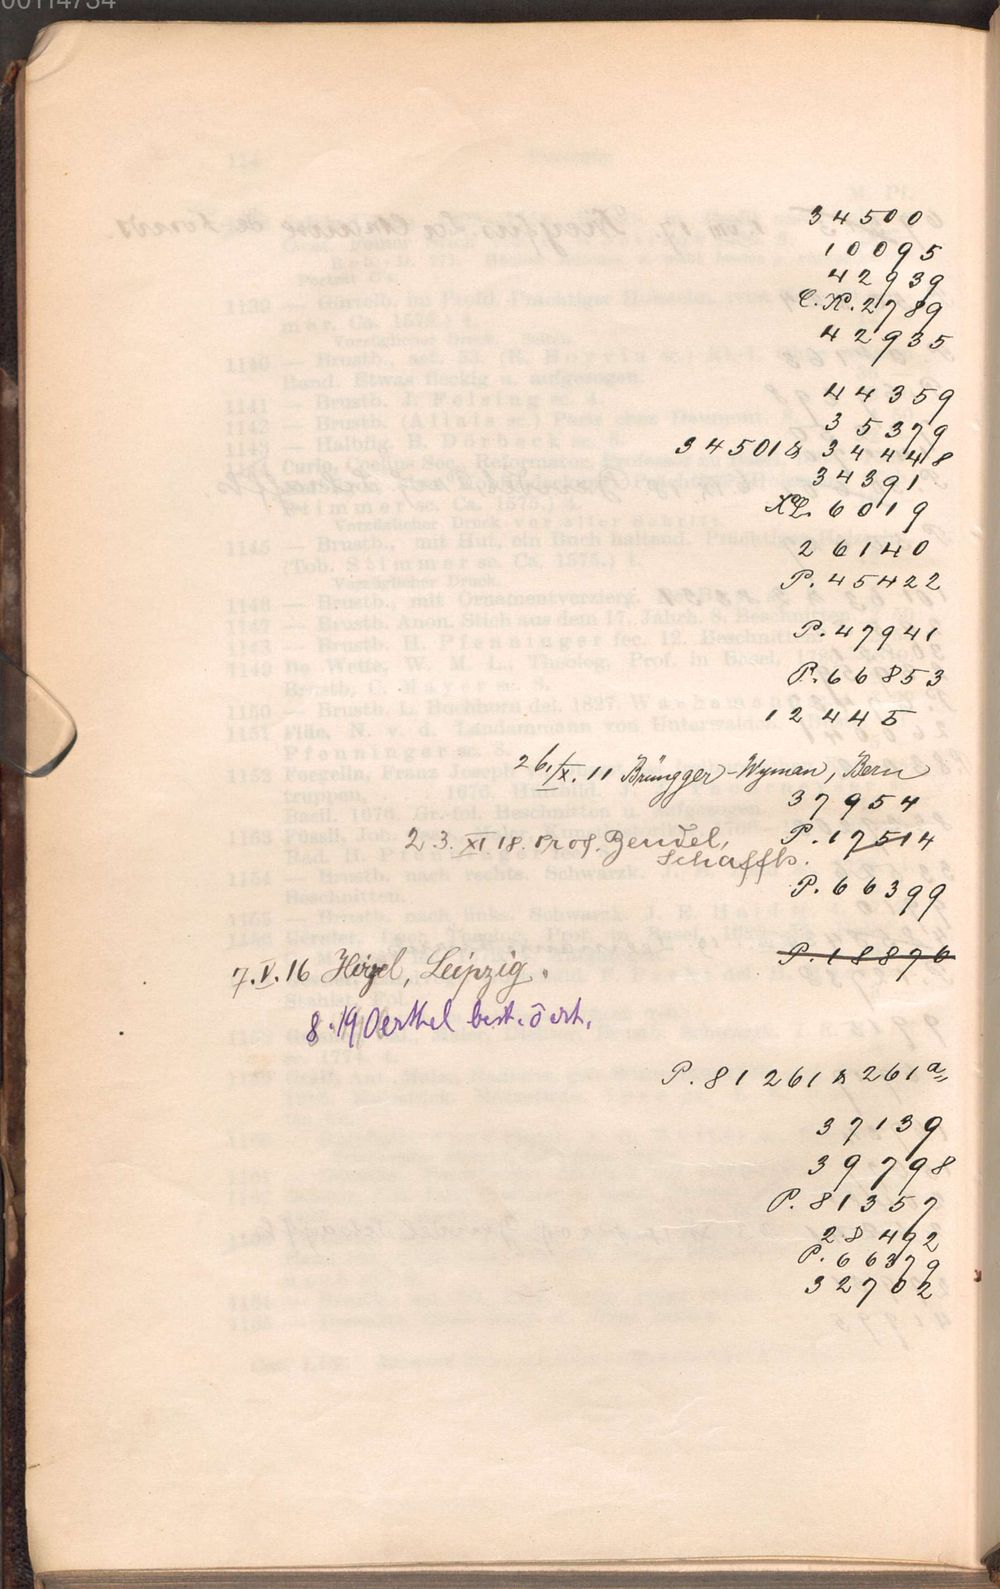 00114734
34500
10095
42939
C.K. 2789
42935
44359
35379
34501 & 34448
34391
6019
26140
P. 45422
P. 47941
P. 66853
12445
26/X. 11 Brüngger-Wyman, Bern
37954
23. XI 18. Prof. Bendel, P. 17514
Schaffh.
P. 66399
P 18876
7. V. 16 Leipzig.
8. 19 Oerthel best.
P. 81 261 & 261a
37139
39798
P. 81357
28492
P. 66379
32702